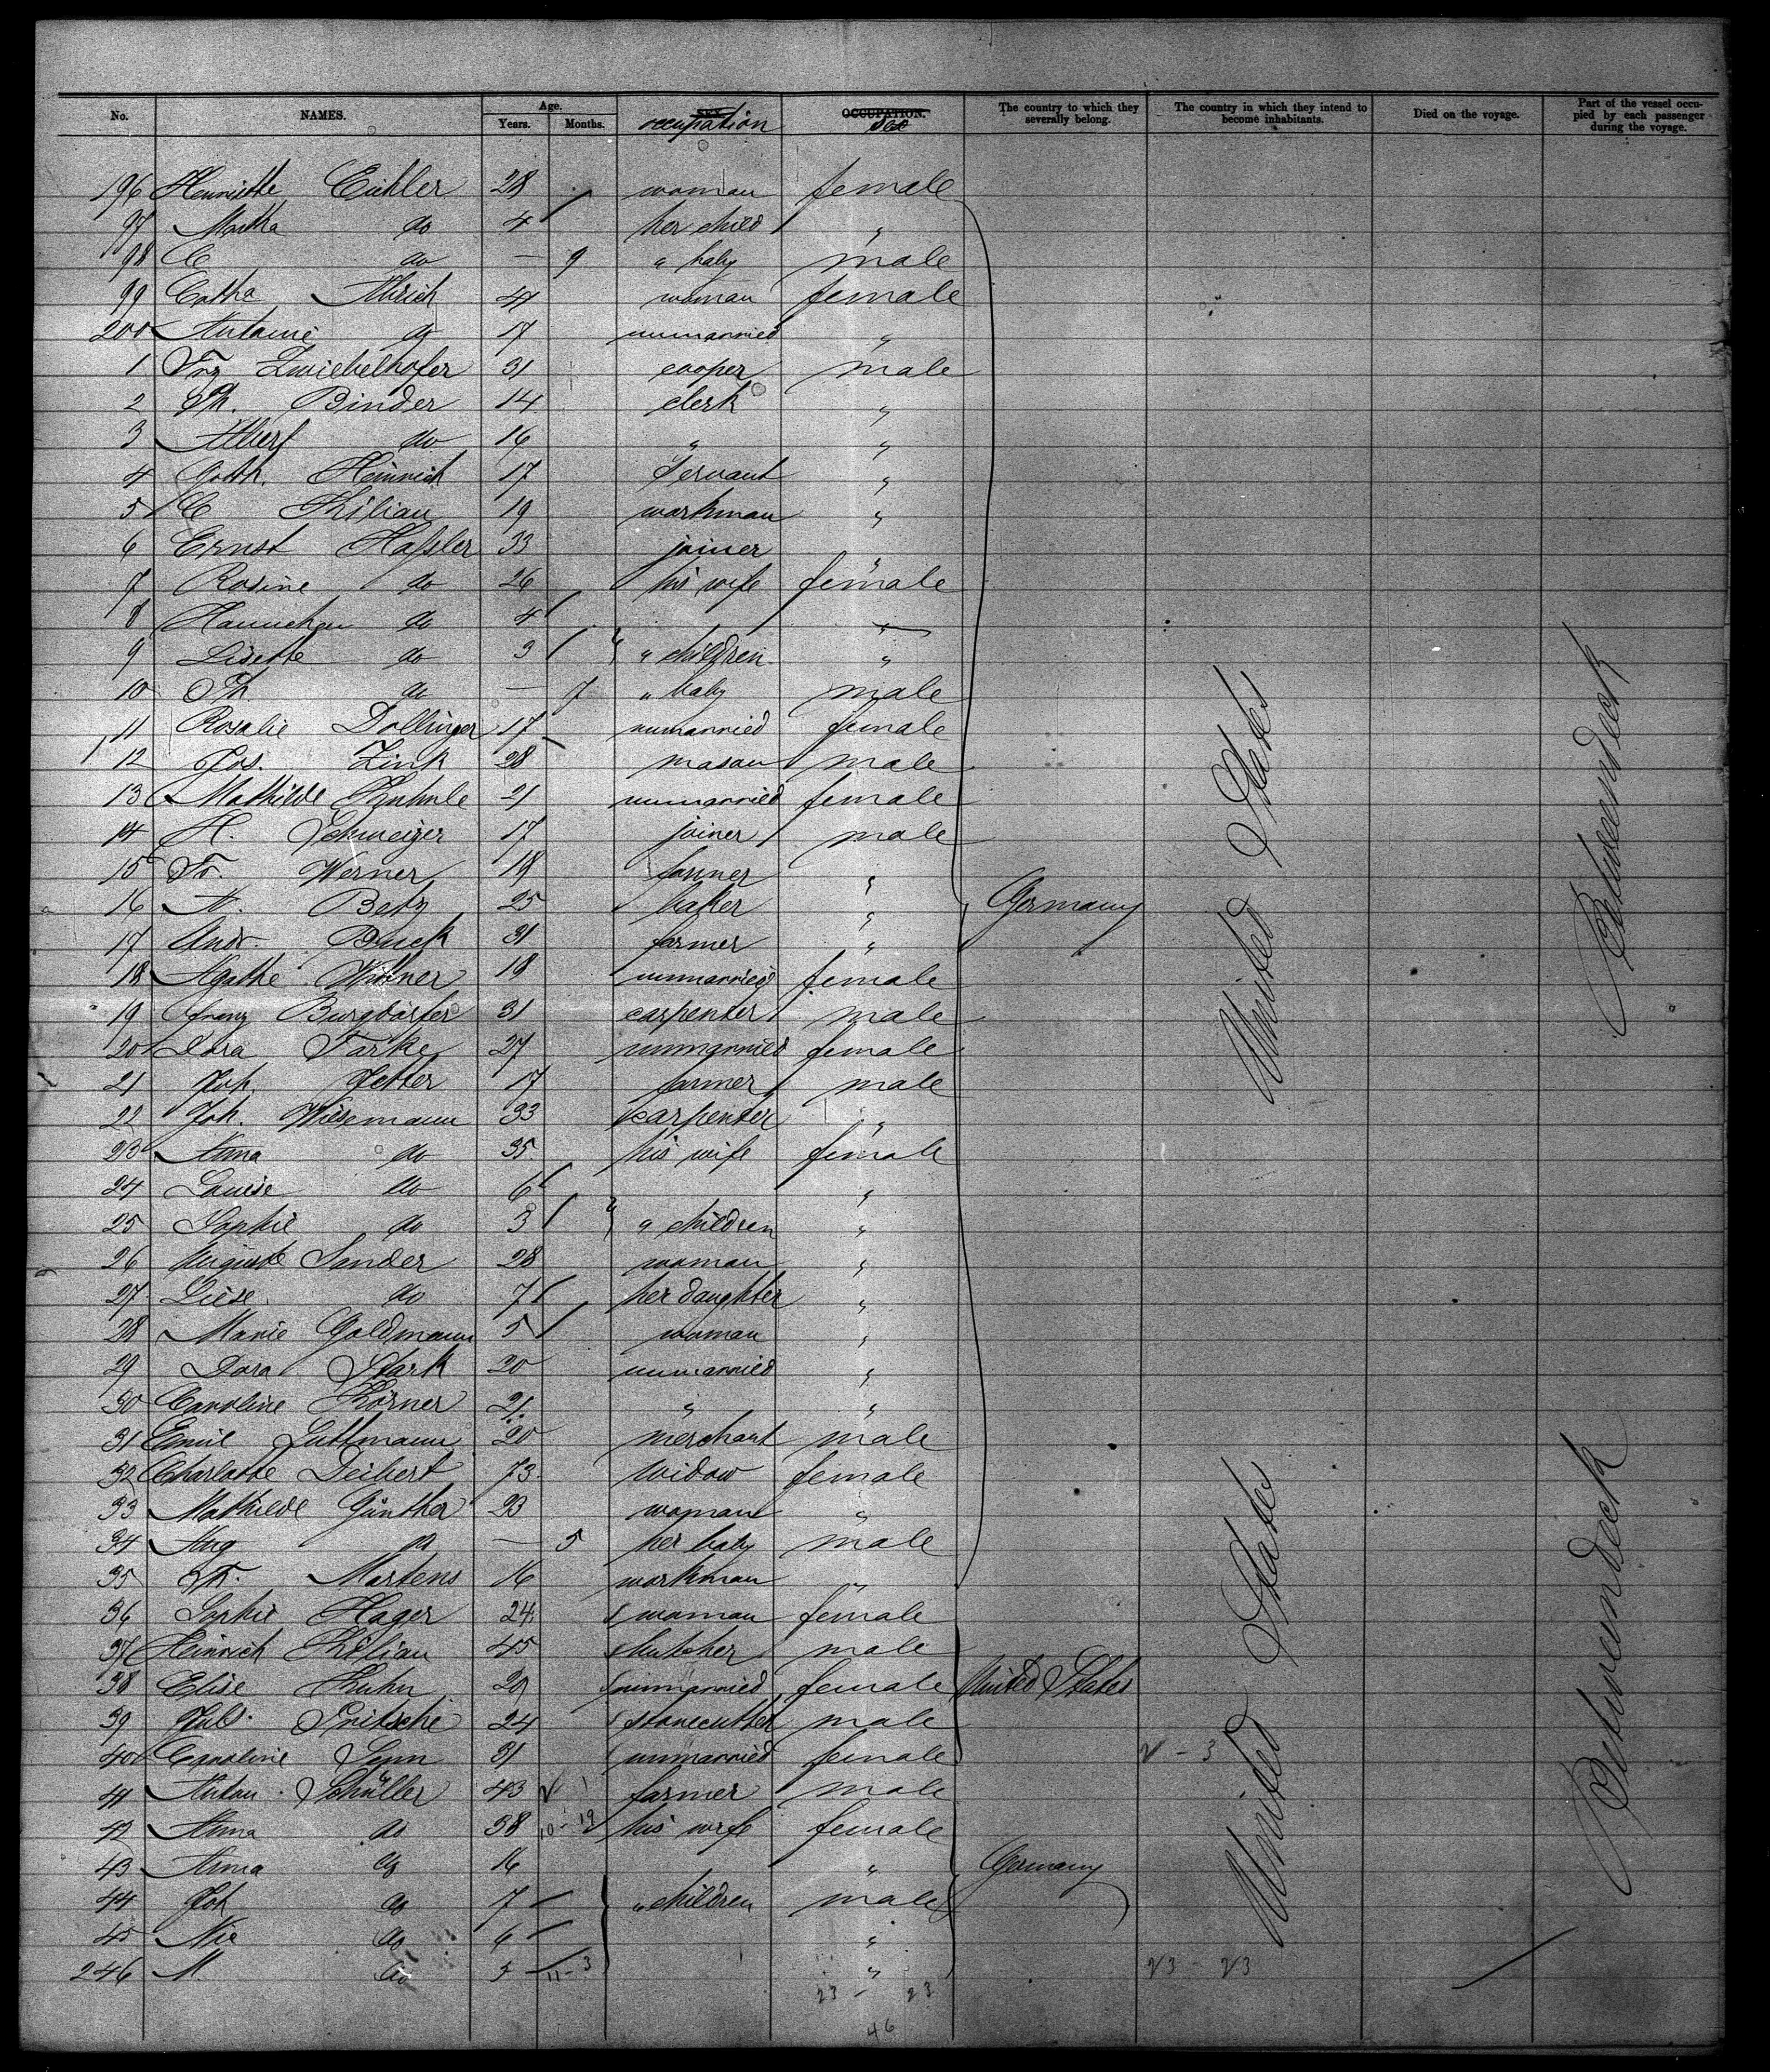 No. NAMES. Age. Years. Months. SEX. occupation OCCUPATION. Sex The country to which they severally belong. The country in which they intend to become inhabitants. Died on the voyage. Part of the vessel occupied by each passenger during the voyage.
196 Henriette Eichler 28 woman female
97 Martha do 4 her child "
98 C do — 9 " baby male
99 Cath. Ulrich 47 woman female
200 Antonie do 17 unmarried "
1 Frz Zwiebelhofer 31 cooper male
2 Th. Binder 14 clerk "
3 Albert do 16 " "
4 Gotth. Heinrich 17 servant "
5 C Kilian 19 workman "
6 Ernst Haßler 33 joiner "
7 Rosine do 26 his wife female
8 Hannchen do 4 "
9 Lisette do 3 " children "
10 Th. do — 7 " baby male
11 Rosalie Dollinger 17 unmarried female
12 Jos. Zink 28 mason male
13 Mathilde Kuhnle 21 unmarried female
14 H. Schweizer 17 joiner male
15 Fr. Werner 18 farmer "
16 A. Betz 25 baker " Germany
17 Andr. Buck 31 farmer "
18 Agathe Hüttner 18 unmarried female
19 Franz Burgdörfer 31 carpenter male
20 Dora Tarke 27 unmarried female
21 Joh. Jetter 17 farmer male
22 Joh. Wiesemann 33 carpenter "
23 Anna do 35 his wife female
24 Louise do 6 "
25 Sophie do 3 " children "
26 Auguste Sander 28 woman "
27 Liese do 7 her daughter "
28 Marie Goldmann 5 woman "
29 Dora Stark 20 unmarried "
30 Caroline Körner 21 " "
31 Emil Luttmann 20 merchant male
32 Charlotte Deibert 73 widow female
33 Mathilde Günther 23 woman "
34 Aug do — 5 her baby male
35 Fr. Martens 16 workman "
36 Sophie Hager 24 woman female
37 Heinrich Kilian 45 butcher male
38 Elise Kuhn 20 unmarried female United States
39 Jul. Fritsche 24 stonecutter male
40 Caroline Senn 31 unmarried female
41 Anton Schüller 43 farmer male
42 Anna do 38 10-19 his wife female
43 Anna do 16 " Germany
44 Joh do 7 " children male
45 Nic do 6 "
246 M. do 5 11-3 " 23 - 23
23 - 23
46
United States
United States
Betweendeck
Betweendeck